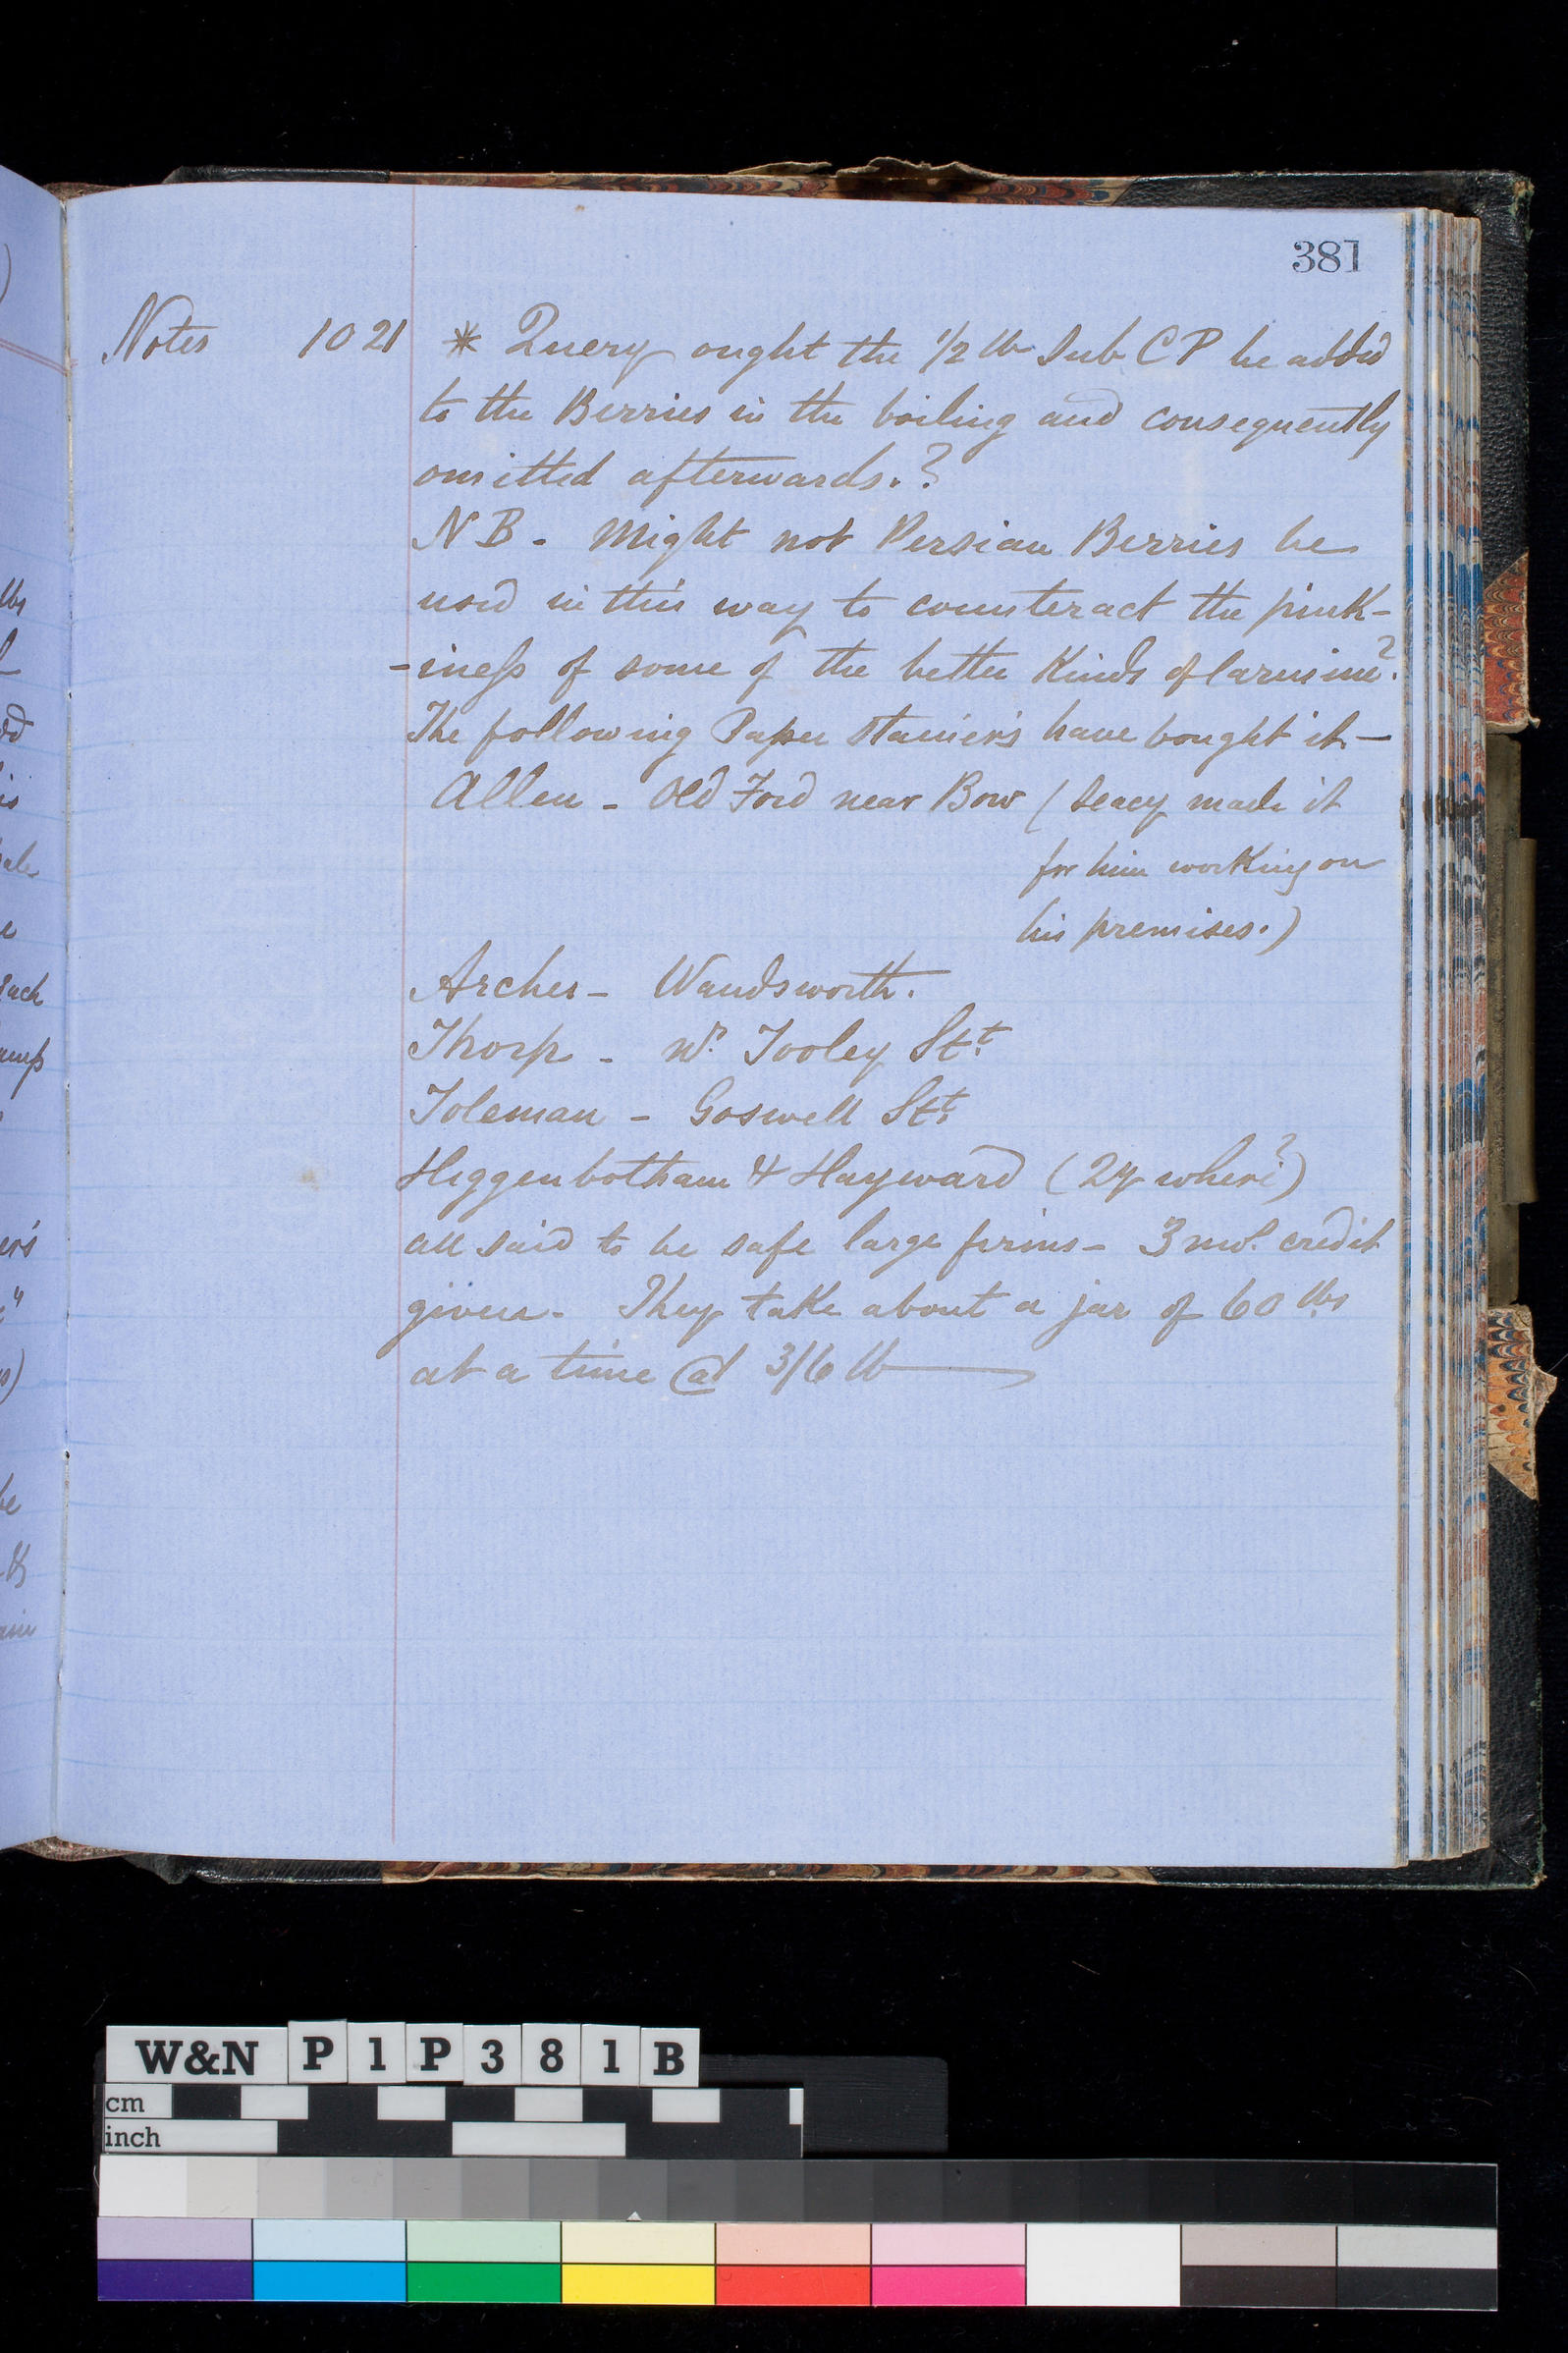 381
Notes 1021 * Query ought the 1/2 lb Sub C P be added
to the Berries in the boiling and consequently
omitted afterwards.?
N B - Might not Persian Berries be
used in this way to counteract the pink-
-iness of some of the better Kinds of Carmine?
The following Paper Stainers have bought it -
Allen - Old Ford near Bow ( Seacy made it
for him working on
his premises.)
Archer - Wandsworth.
Thorp - Nr Tooley Stt
Toleman - Goswell Stt
Higgenbotham & Hayward (Qy where?)
all said to be safe large firms - 3 mo. credit
given. They take about a jar of 60 lbs
at a time @ 3/6 lb
lbs
is
e
each
er's
be
W&N P1P381B
cm
inch